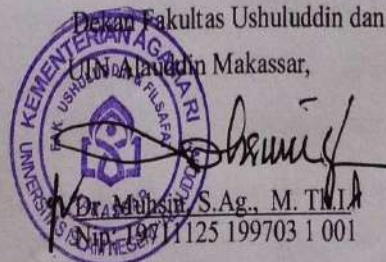 Dekan Fakultas Ushuluddin dan
UIN Alauddin Makassar,
KEMENTERIAN AGAMA RI
FAK. USHULUDDIN & FILSAFAT
UNIVERSITAS ISLAM NEGERI
MAKASSAR
Dr. Muhsin, S.Ag., M. Th.I.
Nip: 19711125 199703 1 001